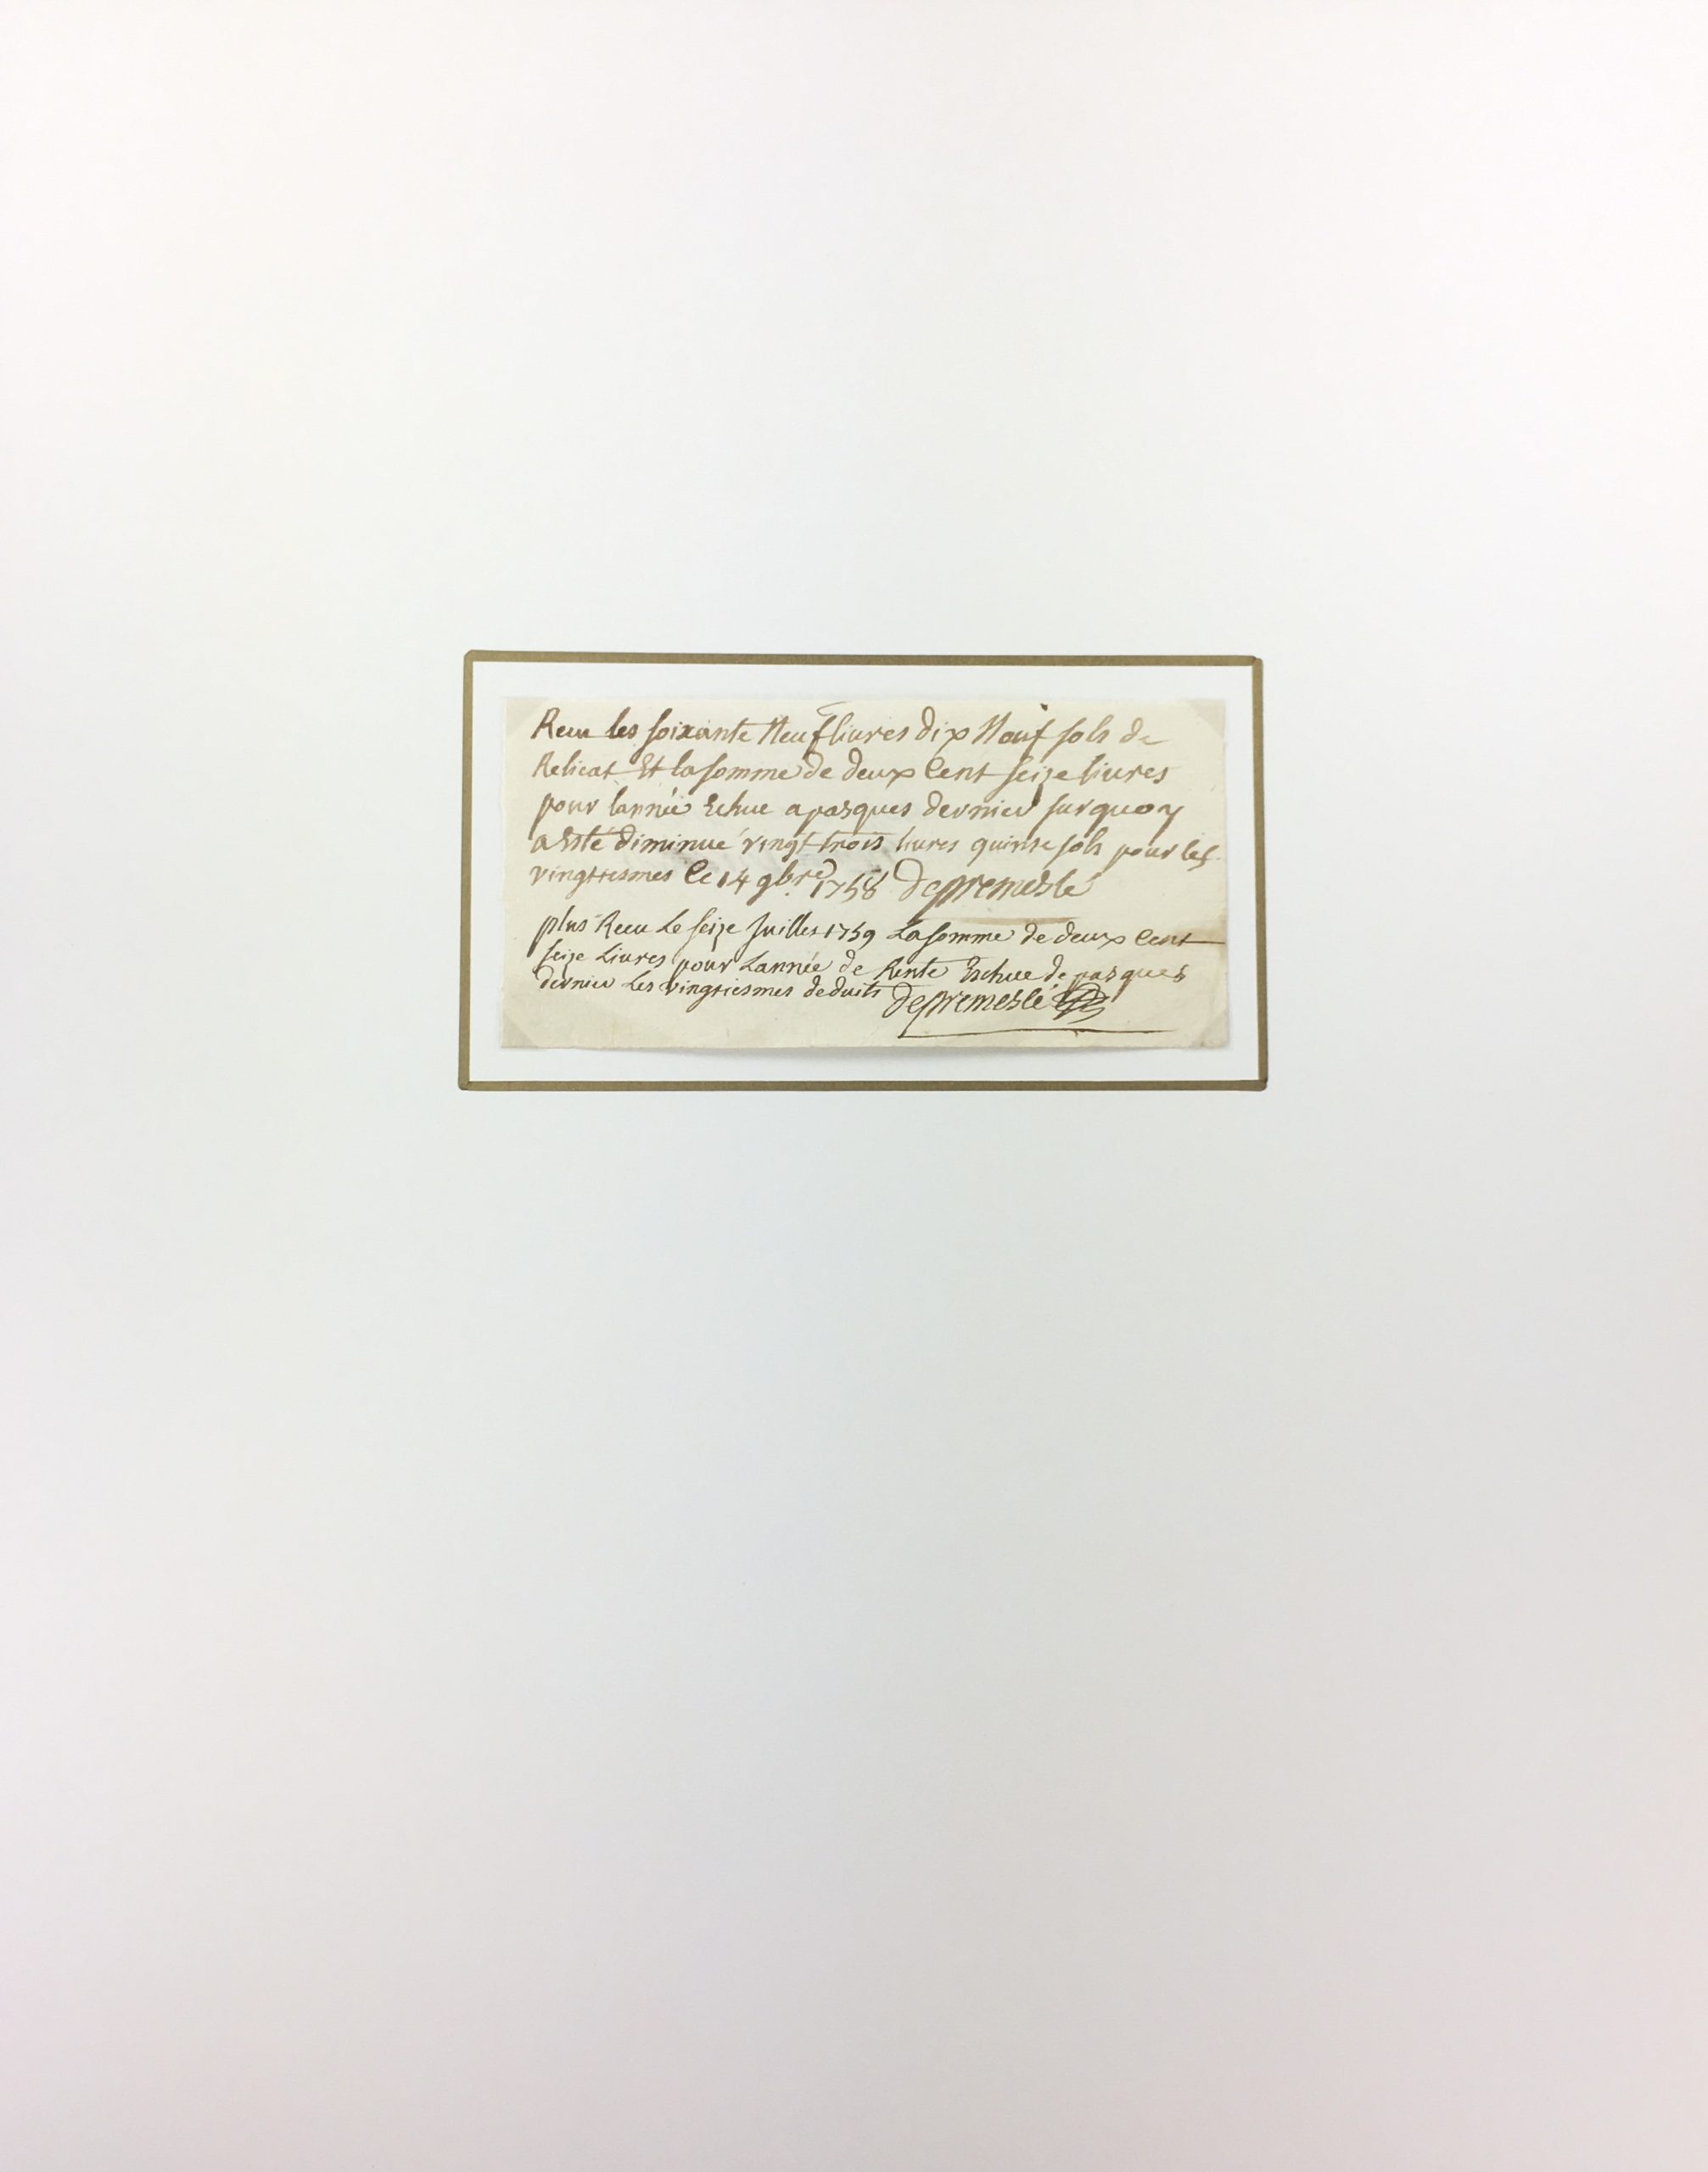 Receu les soixante Neuf liures dix Neuf sols de
Relicat Et la somme de deux Cent seize liures
pour lannée Echue a pasques dernier sur quoy
a Esté diminué vingt trois liures quinse sols pour les
vingtiesmes le 14 9bre 1758 depremeslé
plus Receu Le seize Juilles 1759 La somme de deux Cent
seize Liures pour Lannée de Rente Eschue de pasques
dernier Les vingtiesmes deduits depremeslé